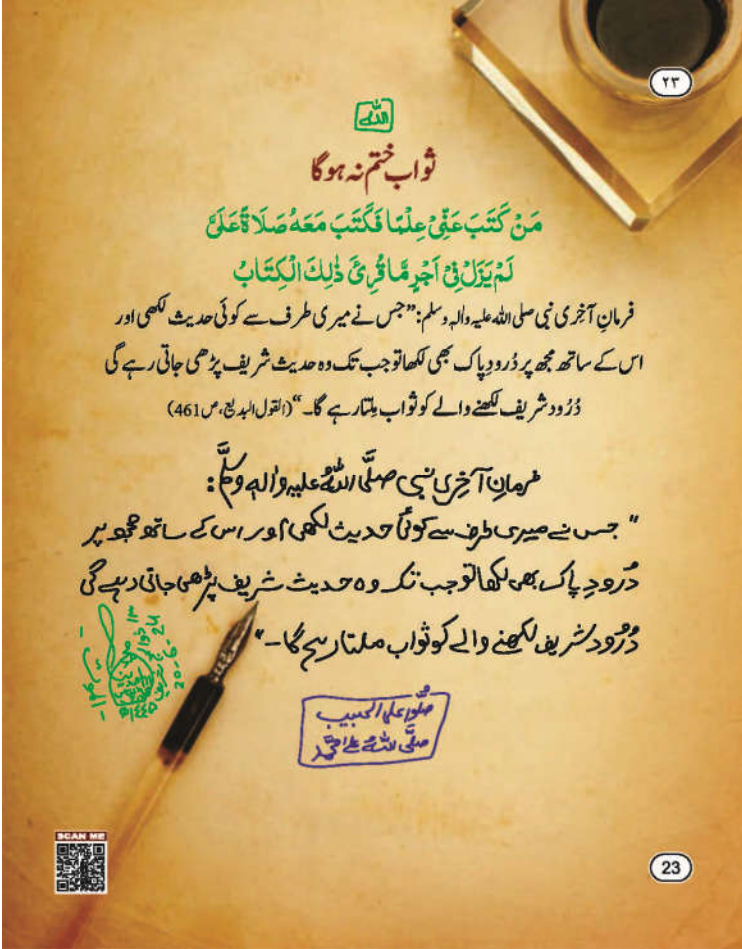 ۲۳
اللّٰه
ثواب ختم نہ ہوگا
مَنْ كَتَبَ عَنِّيْ عِلْمًا فَكَتَبَ مَعَهٗ صَلَاةً عَلَيَّ
لَمْ يَزَلْ فِيْ اَجْرٍ مَّا قُرِئَ ذٰلِكَ الْكِتَابُ
فرمانِ آخِری نبی صلی اللہ علیہ واٰلہٖ وسلم: ”جس نے میری طرف سے کوئی حدیث لکھی اور
اس کے ساتھ مجھ پر دُرودِ پاک بھی لکھا تو جب تک وہ حدیث شریف پڑھی جاتی رہے گی
دُرُود شریف لکھنے والے کو ثواب مِلتا رہے گا۔“ (القول البدیع، ص461)
فرمانِ آخِری نبی صلَّی اللہُ علیہِ واٰلہٖ وسلَّم:
” جس نے میری طرف سے کوئی حدیث لکھی اور اس کے ساتھ مجھ پر
دُرودِ پاک بھی لکھا تو جب تک وہ حدیث شریف پڑھی جاتی رہے گی
دُرُود شریف لکھنے والے کو ثواب ملتا رہے گا۔“
20-6-24
صلُّوا علی الحبیب
صلَّی اللہُ علیٰ محمَّد
SCAN ME
23